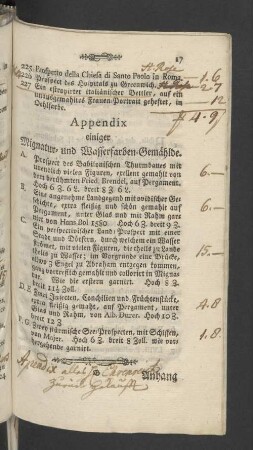 17
225. Prospetto della Chiesa di Santo Paolo in Roma.
226 Prospect des Hospitals zu Greenwich.
1.6
227 Ein estropirter italiänischer Bettler, auf ein
2.7
ausgemahltes Frauen-Portrait geheftet, in
12
Oehlfarbe.
4.9
Appendix
einiger
Mignatur- und Wasserfarben-Gemählde.
A. Prospect des Babilonischen Thurnbaues mit
unendlich vielen Figuren, exellent gemahlt von
dem berühmten Fried. Brendel, auf Pergament.
6.-
Hoch 6 Z. 6 L. breit 8 Z. 6 L.
B. Eine angenehme Landgegend mit ovidischer Ge-
schichte, extra fleißig und schön gemahlt auf
Pergament, unter Glas und mit Rahm gare
6.-
nirt, von Hans Bol 1580. Hoch 6 Z. breit 9 Z.
C. Ein perspectivischer Land-Prospect mit einer
Heide und Dörfern, durch welchem ein Wasser
kömmt, mit vielen Figuren, die theils zu Lande
theils zu Wasser; im Vorgrunde eine Brücke,
15.-
allwo 3 Engel zu Abraham entgegen kommen,
ganz vortreflich gemahlt und colorirt in Mignia-
tur. Wie die erstern garnirt. Hoch 8 Z.
breit 11¼ Zoll.
D. E. Zwey Insecten, Conchilien und Früchtenstücke,
extra fleißig gemahlt, auf Pergament, unter
4.8
Glas und Rahm, von Alb. Durer. Hoch 10 Z.
breit 12 Z
F. G. Zwey pärmische See-Prospecten, mit Schiffen,
1.8.
von Majer. Hoch 6 Z. breit 8 Zoll. wie vor-
hergehende garnirt.
Anhang
Appendix alles
zurück gekauft